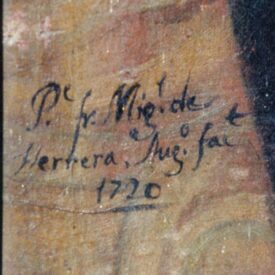 P.e fr. Mig.l de
Herrera. Aug.o fac.t
1720